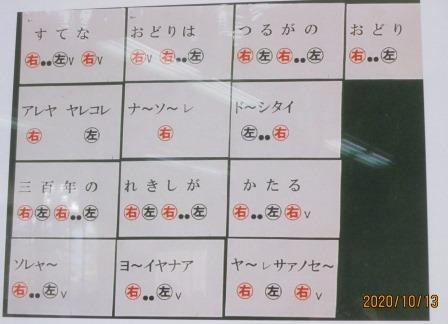 すてな おどりは つるがの おどり
右●●左V 右V 右V 右●●左 右左右●●左 右●●左
アレヤ ヤレコレ ナ〜ソ〜レ ド〜シタイ
右 左 右 左●●右
三百年の れきしが かたる
右左右●●左 右左右●●左 右●●左右V
ソレャ〜 ヨ〜イヤナア ヤ〜レサァノセ〜
右●●左V 右●●左V 右 左 右V
2020/10/13